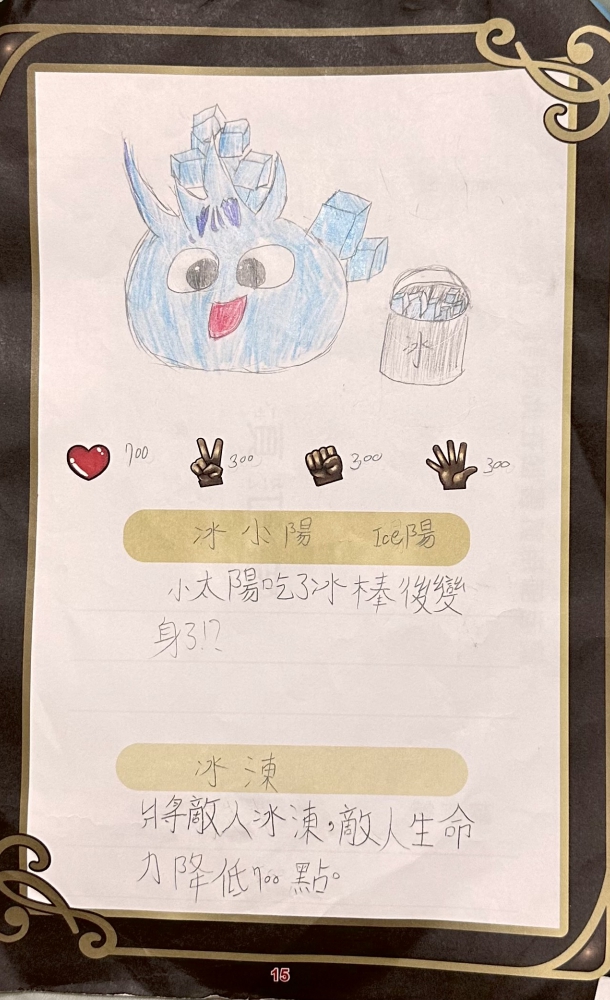 冰
700 300 300 300
冰小陽 Ice陽
小太陽吃了冰棒後變
身了!?
冰凍
將敵人冰凍,敵人生命
力降低700點。
15